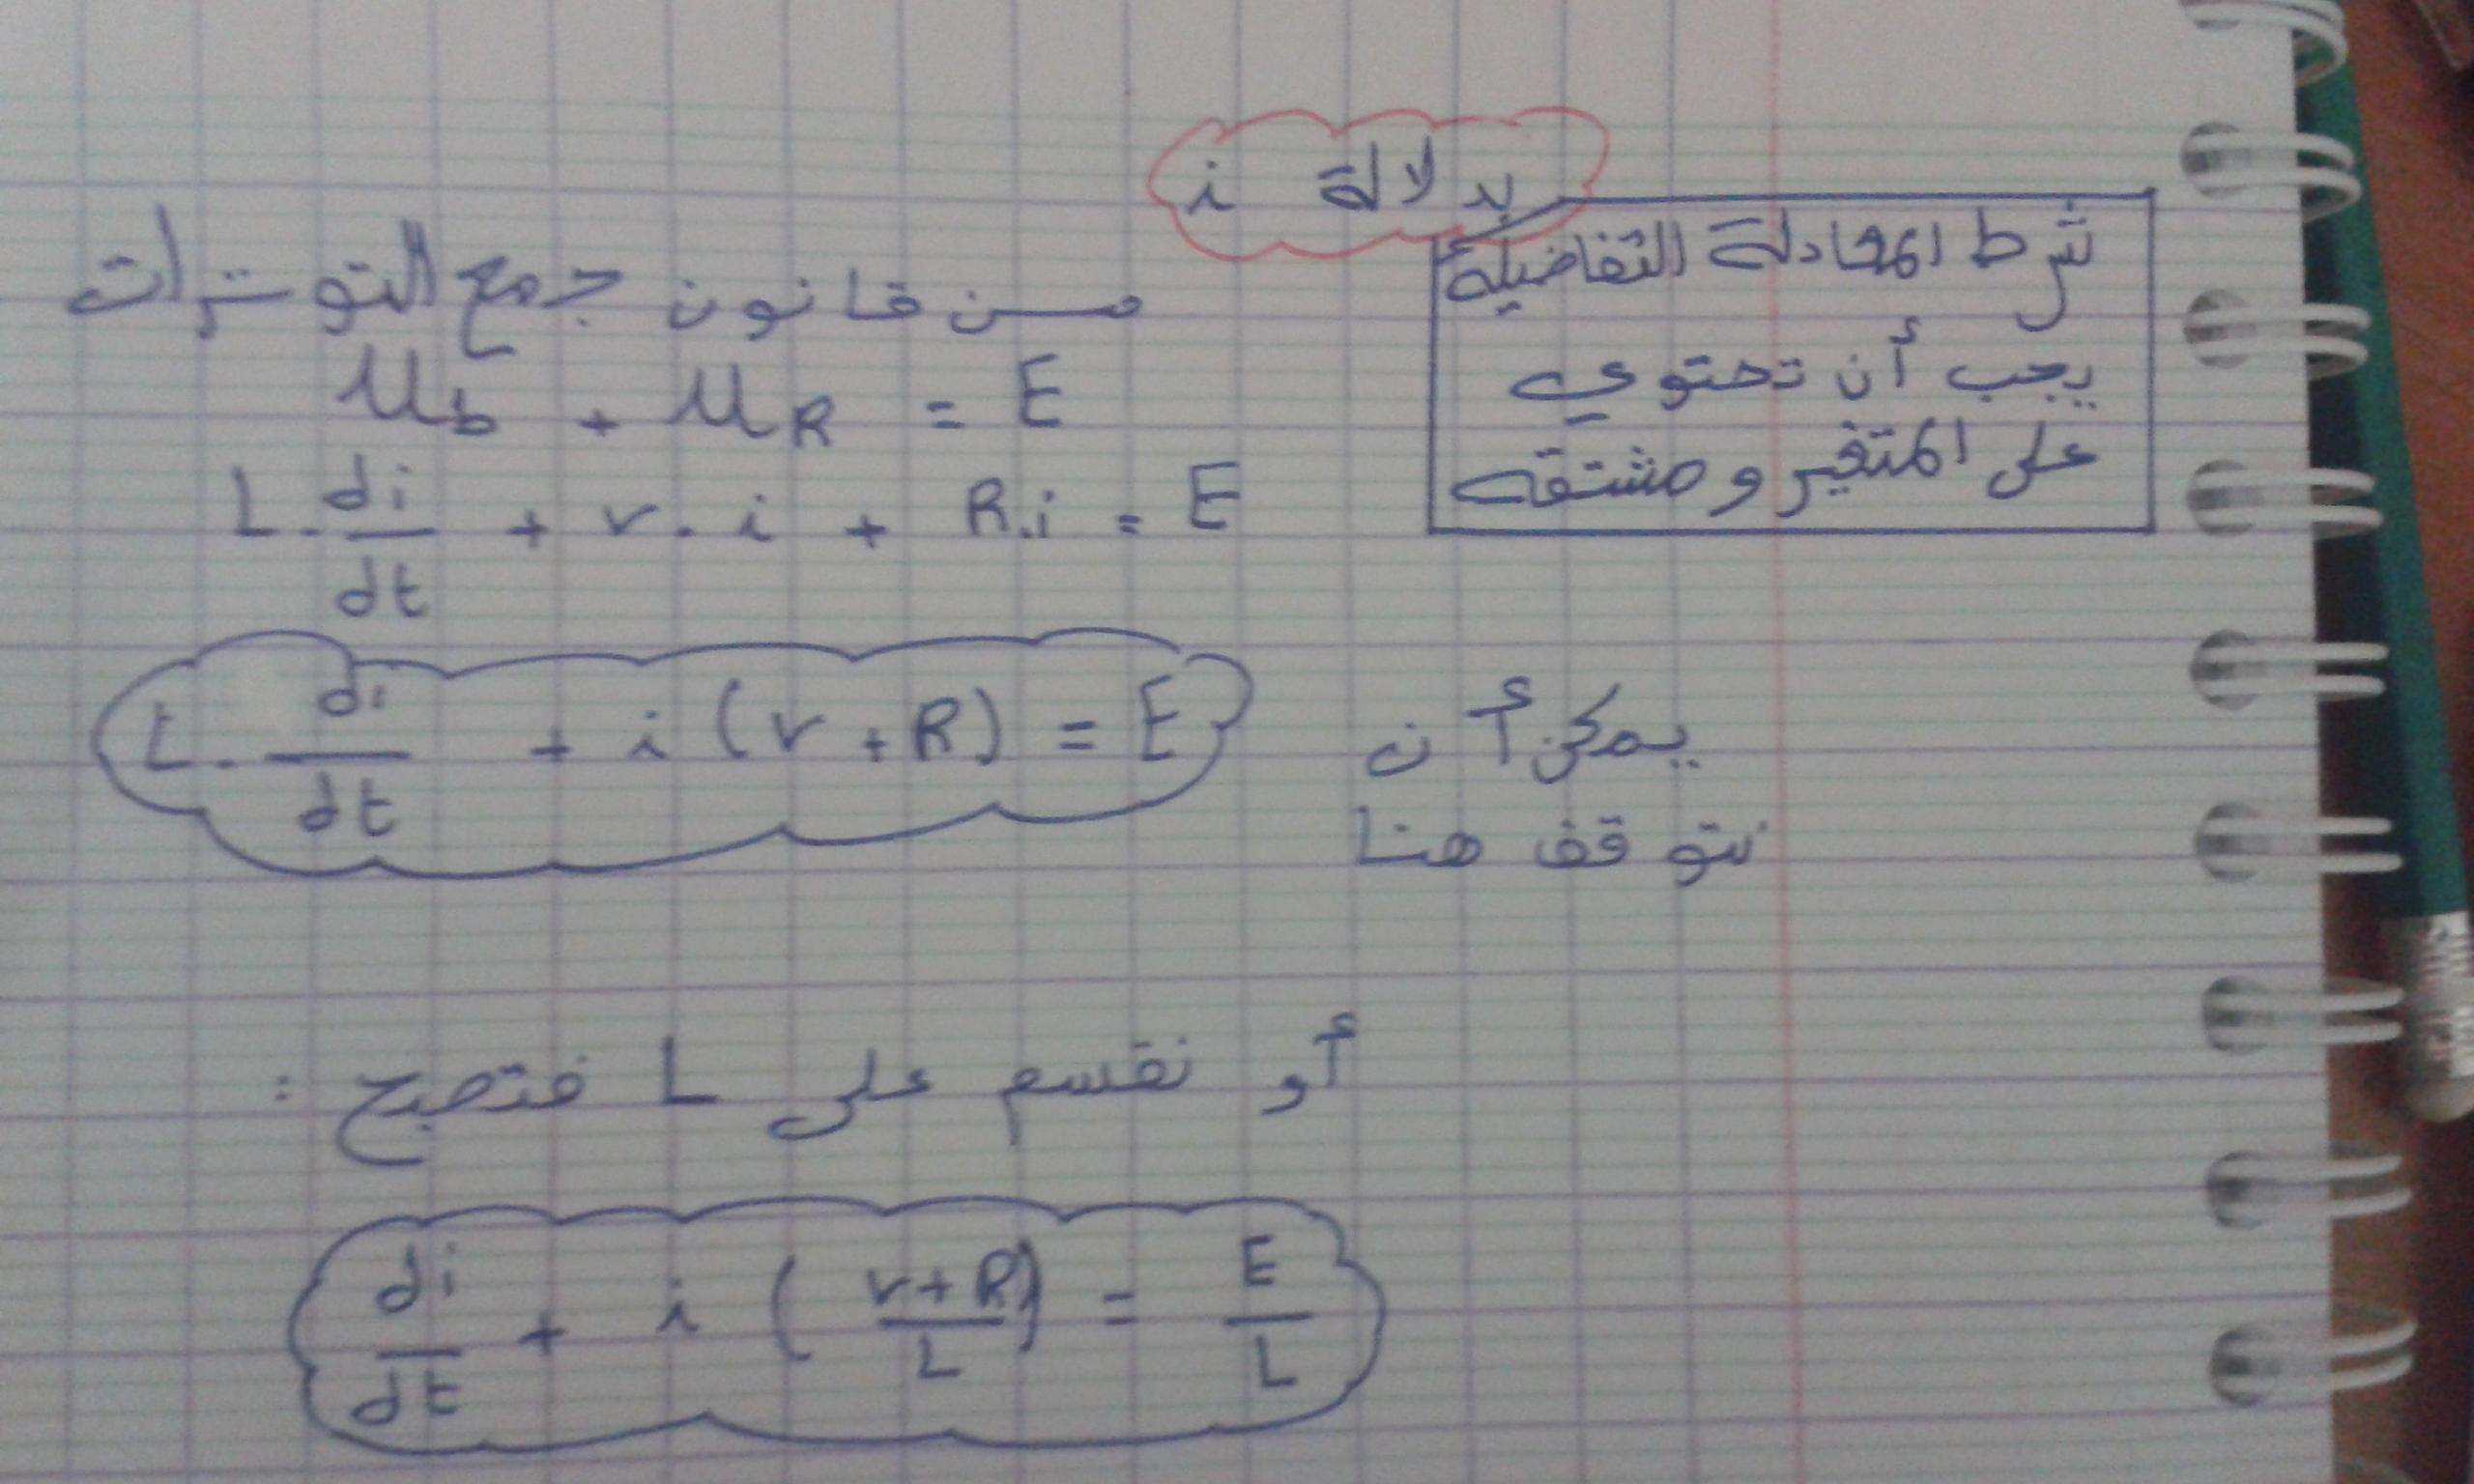 بدلالة i
شرط المعادلة التفاضلية
يجب أن تحتوي
على المتغير ومشتقه
من قانون جمع التوترات
u_b + u_R = E
L . di/dt + r . i + R.i = E
L . di/dt + i (r + R) = E
يمكن أن
نتوقف هنا
أو نقسم على L فتصبح :
di/dt + i ( r+R/L ) = E/L